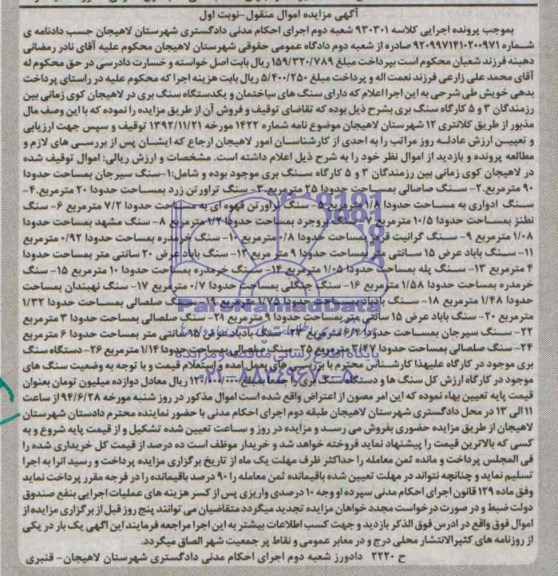 آگهی مزایده اموال منقول-نوبت اول
بموجب پرونده اجرایی کلاسه ۹۳۰۳۰۱ شعبه دوم اجرای احکام مدنی دادگستری شهرستان لاهیجان حسب دادنامه ی
شماره ۹۲۰۹۹۷۱۴۱۰۲۰۰۹۷۱ صادره از شعبه دوم دادگاه عمومی حقوقی شهرستان لاهیجان محکوم علیه آقای نادر رمضانی
دهینه فرزند شعبان محکوم است بپرداخت مبلغ ۱۵۹/۳۲۰/۷۸۹ ریال بابت اصل خواسته و خسارت دادرسی در حق محکوم له
آقای محمد علی زارعی فرزند نعمت اله و پرداخت مبلغ ۵/۴۰۰/۲۵۰ ریال بابت هزینه اجرا که محکوم علیه در راستای پرداخت
بدهی خویش طی شرحی به این اجرا اعلام که دارای سنگ های ساختمان و یکدستگاه سنگ بری در لاهیجان کوی زمانی بین
رزمندگان ۳ و ۵ کارگاه سنگ بری بشرح ذیل بوده که تقاضای توقیف و فروش آن از طریق مزایده را نموده که با این وصف مال
مذبور از طریق کلانتری ۱۲ شهرستان لاهیجان موضوع نامه شماره ۱۴۲۲ مورخه ۱۳۹۲/۱۱/۲۱ توقیف و سپس جهت ارزیابی
و تعیین ارزش عادلـه روز مراتب را به احدی از کارشناسان امور لاهیجان ارجاع که ایشان پس از بررسی های لازم و
مطالعه پرونده و بازدید از اموال نظر خود را به شرح ذیل اعلام داشته است. مشخصات و ارزش ریالی: اموال توقیف شده
در لاهیجان کوی زمانی بین رزمندگان ۳ و ۵ کارگاه سنگ بری موجود بوده و شامل:۱-سنگ سیرجان بمساحت حدودا
۹۰ مترمربع.۲- سنگ صاصالی بمساحت حدودا ۲۵ مترمربع-۳- سنگ تراورتن زرد بمساحت حدودا ۲۰ مترمربع.۴-
سنگ ادواری به مساحت حدودا ۱/۸ مترمربع ۵- سنگ تراورتن قهوه ای به مساحت حدودا ۷/۲ مترمربع ۶- سنگ
نطنز بمساحت حدودا ۱۰/۵ مترمربع ۷- سنگ بروجرد بمساحت حدودا ۱/۲ مترمربع ۸- سنگ مشهد بمساحت حدودا
۱/۰۸ مترمربع ۹- سنگ گرانیت بمساحت حدودا ۰/۸ مترمربع ۱۰- سنگ خرمدره بمساحت حدودا ۰/۹۲ مترمربع
۱۱- سنگ باباد عرض ۱۵ سانتی متر بمساحت حدودا ۹ مترمربع ۱۲- سنگ باباد عرض ۲۰ سانتی متر بمساحت حدودا
۴ مترمربع ۱۳- سنگ پله بمساحت حدودا ۱/۰۵ مترمربع ۱۴- سنگ خرمدره بمساحت حدودا ۱۰ مترمربع ۱۵- سنگ
خرمدره بمساحت حدودا ۱/۵۸ مترمربع ۱۶- سنگ جنگلی بمساحت حدودا ۰/۷ مترمربع ۱۷- سنگ نهبندان بمساحت
حدودا ۱/۴۸ مترمربع ۱۸- سنگ باباد بمساحت حدودا ۱/۷۵ مترمربع ۱۹- سنگ صلصالی بمساحت حدودا ۱/۳۲
مترمربع ۲۰- سنگ باباد عرض ۱۵ سانتی متر بمساحت حدودا ۹ مترمربع ۲۱- سنگ صلصالی بمساحت حدودا ۳ مترمربع
۲۲- سنگ سیرجان بمساحت حدودا مترمربع ۲۳- سنگ باباد عرض ۱۵ سانتی متر بمساحت حدودا ۶ مترمربع
۲۴- سنگ صلصالی بمساحت حدودا ۳/۴۷ مترمربع ۲۵- سنگ صلصالی بمساحت حدودا ۱/۱۴ مترمربع ۲۶- دستگاه سنگ
بری موجود در کارگاه علیهذا کارشناس محترم با بررسی های بعمل آمده و استعلام قیمت و با توجه به وضعیت سنگ های
موجود در کارگاه ارزش کل سنگ ها و دستگاه ریال معادل دوازده میلیون تومان بعنوان
قیمت پایه تعیین بهاء نموده که این امر مصون از اعتراض واقع شده است اموال مذکور در روز شنبه مورخه ۹۴/۶/۲۸ از ساعت
۱۱ الی ۱۳ در محل دادگستری شهرستان لاهیجان طبقه دوم اجرای احکام مدنی با حضور نماینده محترم دادستان شهرستان
لاهیجان از طریق مزایده حضوری بفروش می رسد و مزایده در روز و ساعت تعیین شده تشکیل و از قیمت پایه شروع و به
کسی که بالاترین قیمت را پیشنهاد نماید فروخته خواهد شد و خریدار موظف است ده درصد از قیمت کل خریداری شده را
فی المجلس پرداخت و مانده ثمن معامله را حداکثر ظرف مهلت یک ماه از تاریخ برگزاری مزایده پرداخت و رسید انرا به اجرا
تسلیم نماید و چنانچه نتواند در مهلت تعیین شده باقیمانده ثمن معامله را ۹۰ درصد باقیمانده را در فرجه مقرر پرداخت نماید
وفق ماده ۱۲۹ قانون اجرای احکام مدنی سپرده او وجه ۱۰ درصدی واریزی پس از کسر هزینه های عملیات اجرایی بنفع صندوق
دولت ضبط و در صورت درخواست مجدد خواهان مزایده تجدید میگردد متقاضیان می توانند پنج روز قبل از برگزاری مزایده از
اموال فوق واقع در ادرس فوق الذکر بازدید و جهت کسب اطلاعات بیشتر به این اجرا مراجعه فرمایند این آگهی یک بار در یکی
از روزنامه های کثیرالانتشار محلی درج و در معابر عمومی و نقاط پر جمعیت شهر الصاق میگردد.
ح ۲۲۲۰ دادورز شعبه دوم اجرای احکام مدنی دادگستری شهرستان لاهیجان- قنبری
ParsNamadData
پایگاه اطلاع رسانی مناقصه و مزایده
۰۲۱-۸۸۳۴۹۶۷۰-۵